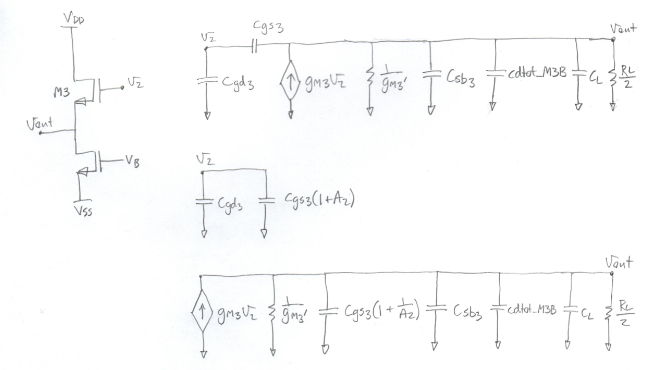 VDD
M3
V2
Vout
VB
VSS
V2
Cgs3
Vout
Cgd3
gm3V2
1/gm3'
Csb3
cdtot_M3B
CL
RL/2
V2
Cgd3
Cgs3(1+A2)
Vout
gm3V2
1/gm3'
Cgs3(1+1/A2)
Csb3
cdtot_M3B
CL
RL/2